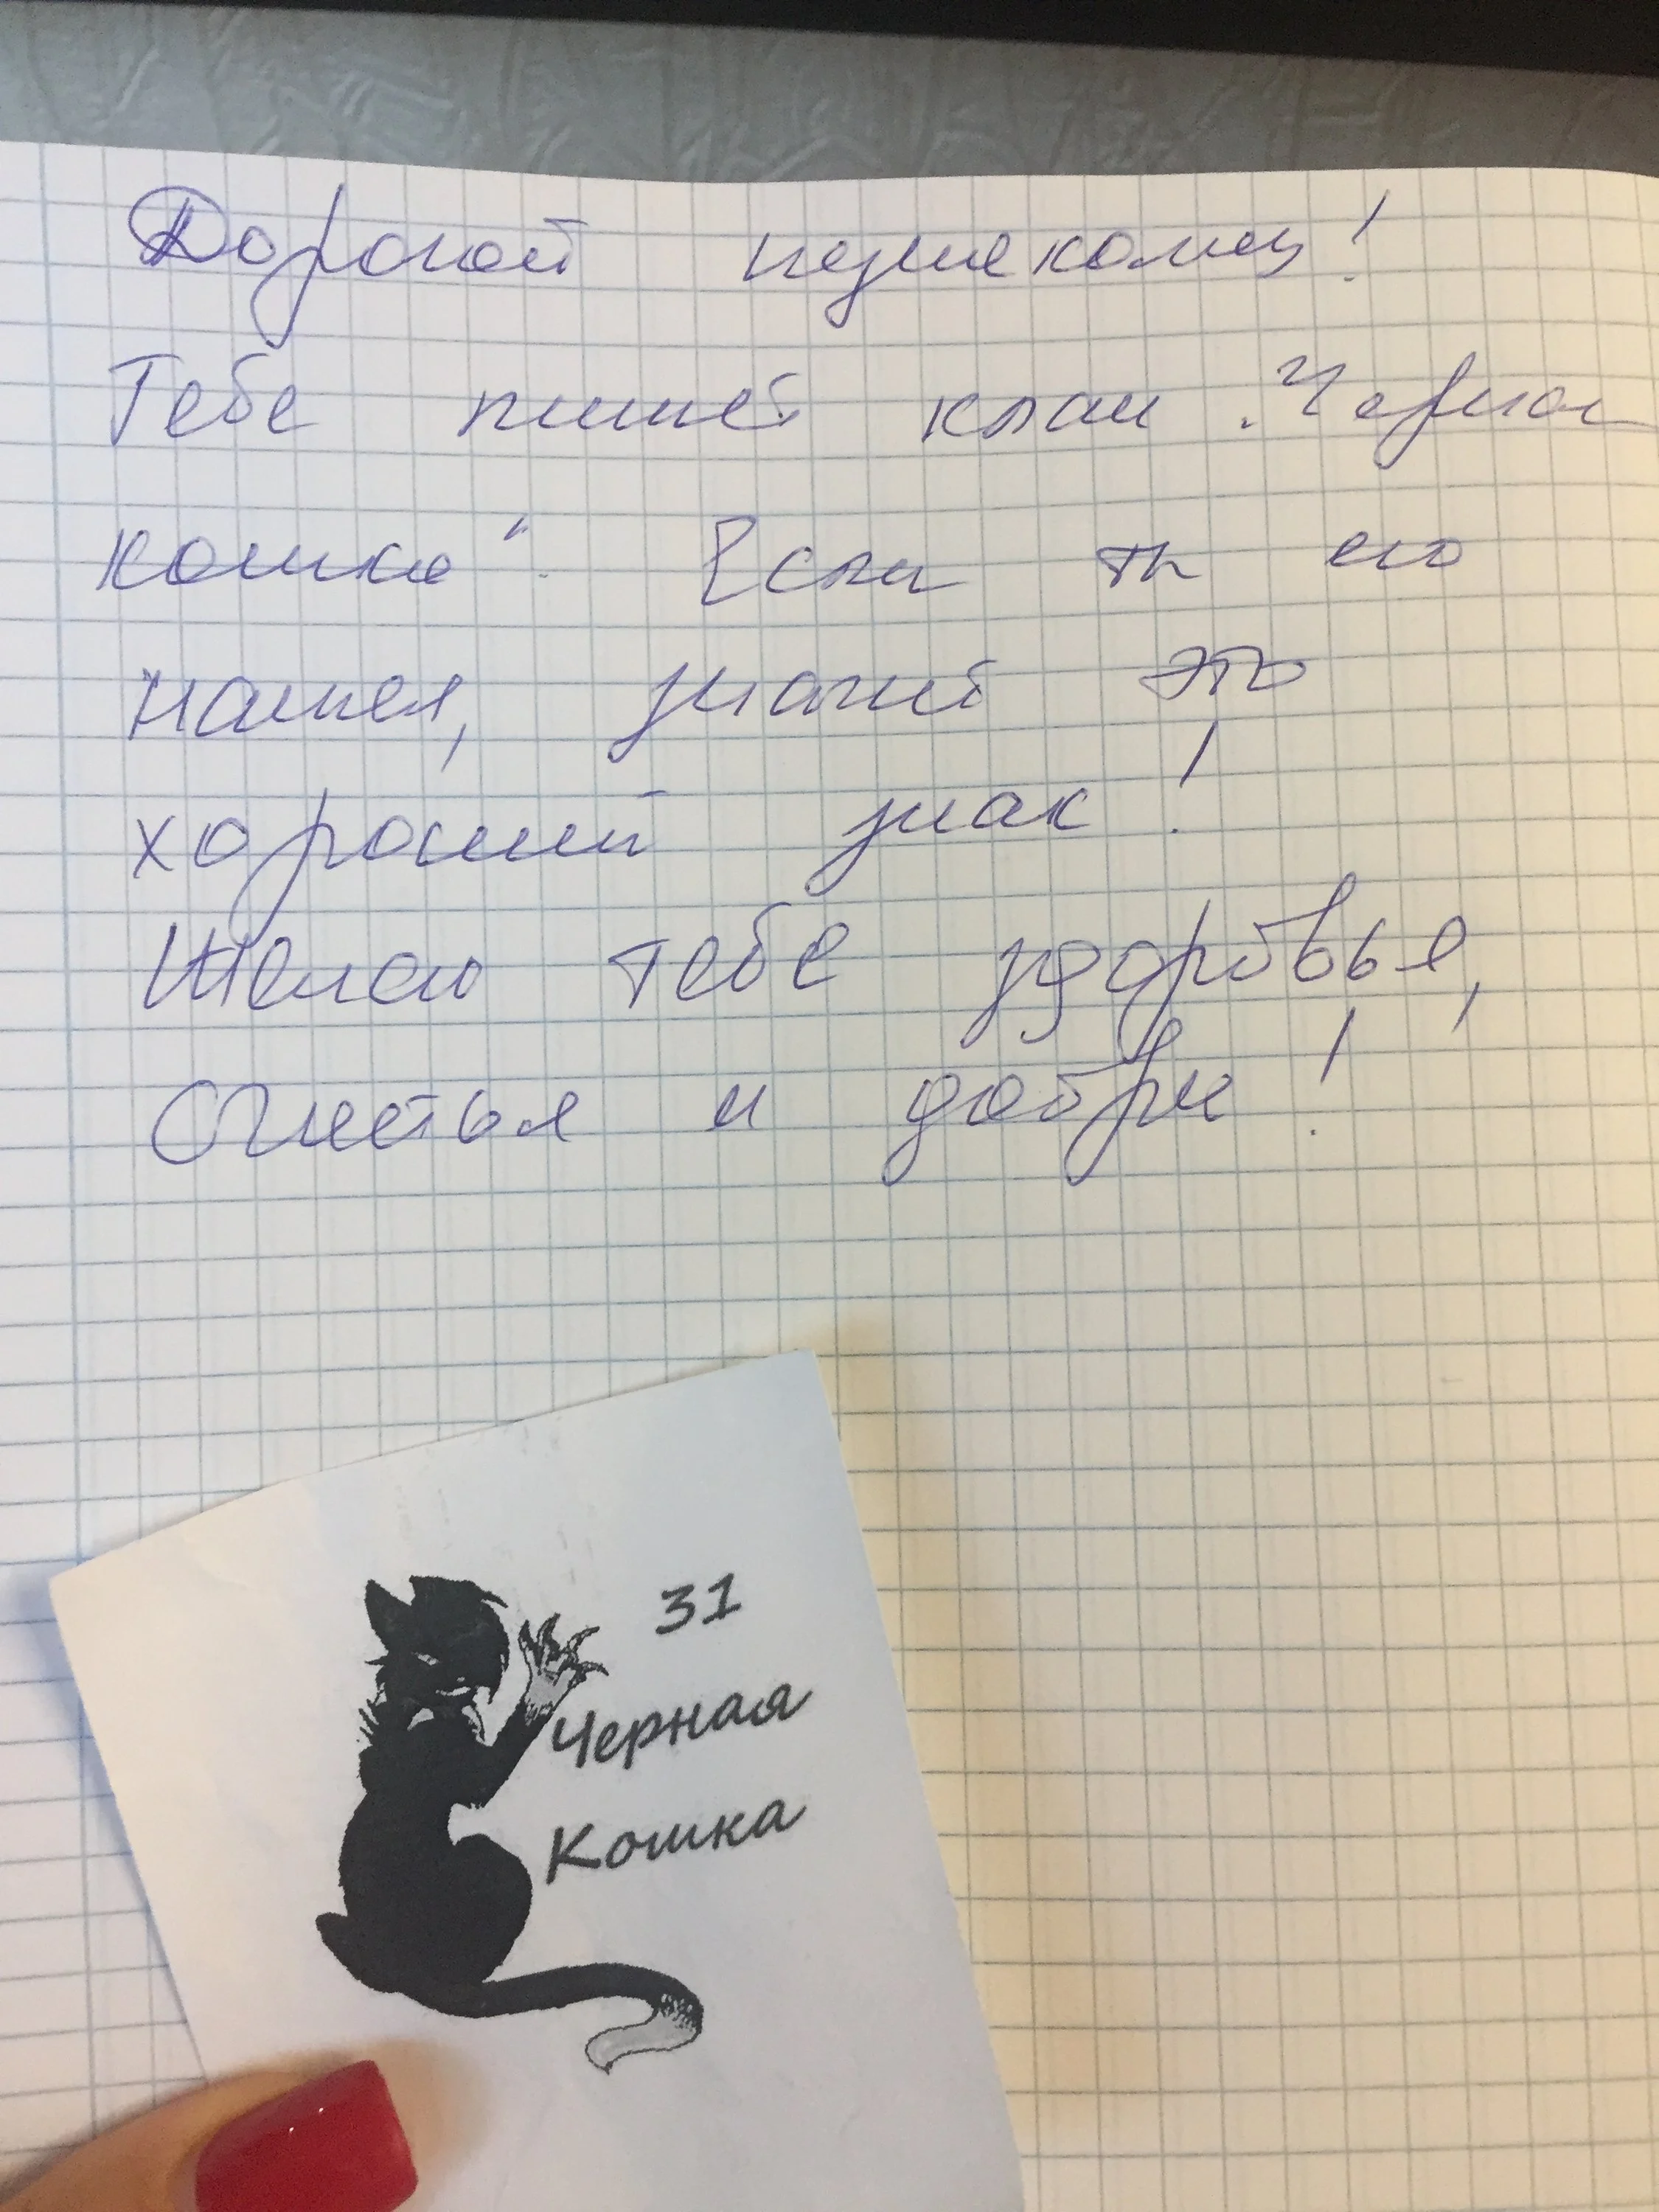 Дорогой незнакомец!
Тебе пишет клан „Черная
кошка“. Если ты его
нашел, значит это
хороший знак!
Желаю тебе здоровья,
Счастья и добра!
31
Черная
Кошка